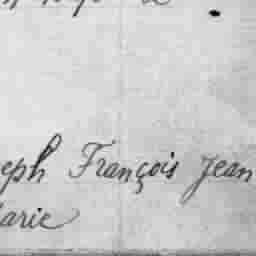 eph François Jean
arie